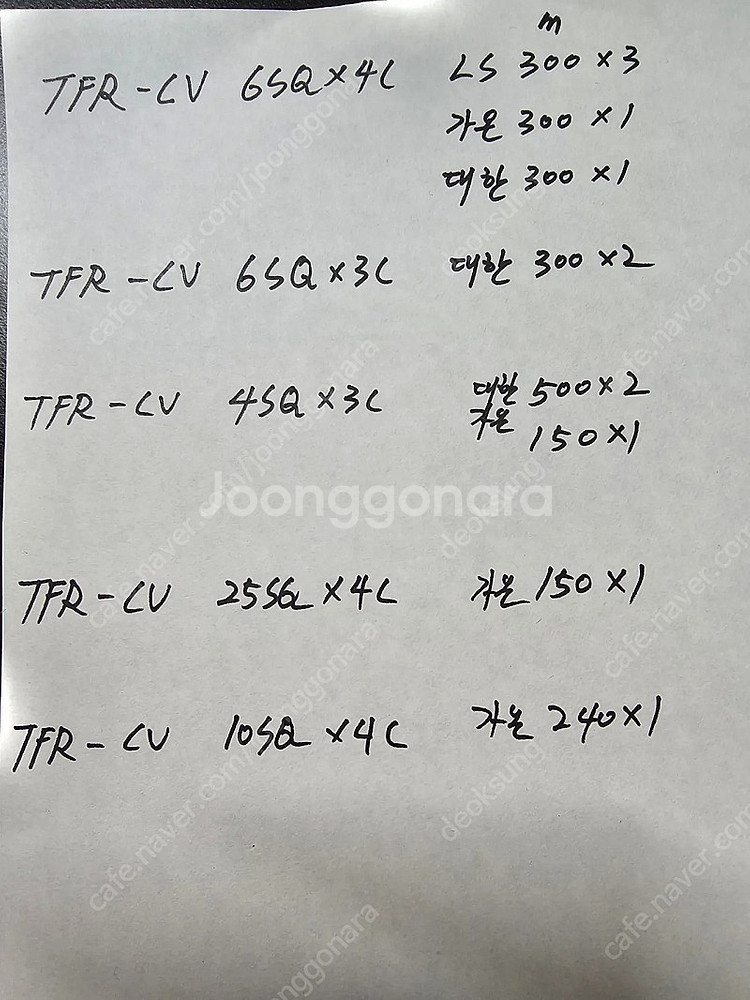 m
TFR-CV 6SQ×4C LS 300×3
가온 300×1
대한 300×1
TFR-CV 6SQ×3C 대한 300×2
TFR-CV 4SQ×3C 대한 500×2
가온 150×1
Joonggonara
TFR-CV 25SQ×4C 가온 150×1
TFR-CV 10SQ×4C 가온 240×1
cafe.naver.com/joonggonara
deoksung